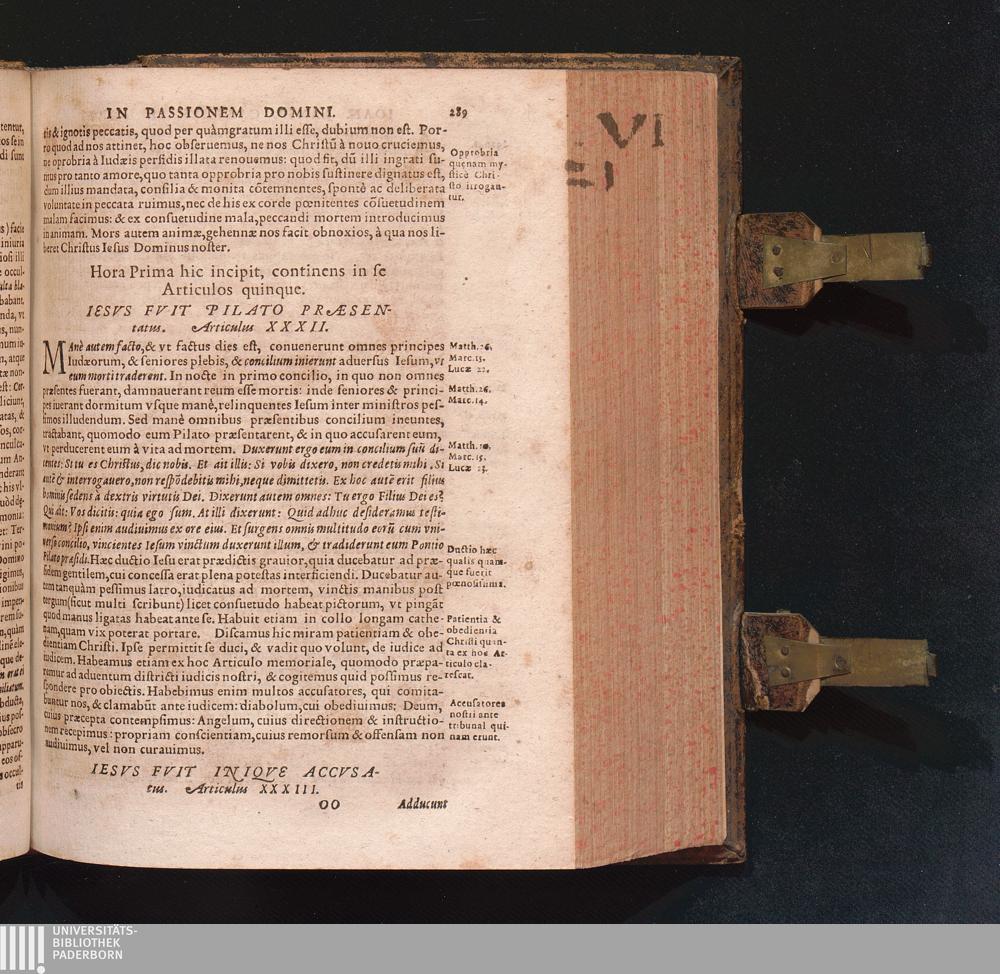 IN PASSIONEM DOMINI. 289
tis & ignotis peccatis, quod per quàm gratum illi esse, dubium non est. Por-
ro quod ad nos attinet, hoc obseruemus, ne nos Christū à nouo cruciemus,
ne oprobria à Iudæis perfidis illata renouemus: quod fit, dū illi ingrati su-
mus pro tanto amore, quo tanta opprobria pro nobis sustinere dignatus est,
dum illius mandata, consilia & monita cōtemnentes, spontè ac deliberata
voluntate in peccata ruimus, nec de his ex corde pœnitentes cōsuetudinem
malam facimus: & ex consuetudine mala, peccandi mortem introducimus
in animam. Mors autem animæ, gehennæ nos facit obnoxios, à qua nos li-
beret Christus Iesus Dominus noster.
Opprobria
quenam my-
sticè Chri-
sto irrogan-
tur.
Hora Prima hic incipit, continens in se
Articulos quinque.
IESVS FVIT PILATO PRÆSEN-
tatus. Articulus XXXII.
MAnè autem facto, & vt factus dies est, conuenerunt omnes principes
Iudæorum, & seniores plebis, & concilium inierunt aduersus Iesum, vt
eum morti traderent. In nocte in primo concilio, in quo non omnes
præsentes fuerant, damnauerant reum esse mortis: inde seniores & princi-
pes iuerant dormitum vsque manè, relinquentes Iesum inter ministros pes-
simos illudendum. Sed manè omnibus præsentibus concilium ineuntes,
tractabant, quomodo eum Pilato præsentarent, & in quo accusarent eum,
vt perducerent eum à vita ad mortem. Duxerunt ergo eum in concilium suū di-
centes: Si tu es Christus, dic nobis. Et ait illis: Si vobis dixero, non credetis mihi. Si
autē & interrogauero, non respōdebitis mihi, neque dimittetis. Ex hoc autē erit filius
hominis sedens à dextris virtutis Dei. Dixerunt autem omnes: Tu ergo Filius Dei es?
Qui ait: Vos dicitis: quia ego sum. At illi dixerunt: Quid adhuc desideramus testi-
monium? Ipsi enim audiuimus ex ore eius. Et surgens omnis multitudo eorū cum vni-
uerso concilio, vincientes Iesum vinctum duxerunt illum, & tradiderunt eum Pontio
Pilato præsidi. Hæc ductio Iesu erat prædictis grauior, quia ducebatur ad præ-
sidem gentilem, cui concessa erat plena potestas interficiendi. Ducebatur au-
tem tanquàm pessimus latro, iudicatus ad mortem, vinctis manibus post
tergum (sicut multi scribunt) licet consuetudo habeat pictorum, vt pingāt
quod manus ligatas habeat ante se. Habuit etiam in collo longam cathe-
nam, quam vix poterat portare. Discamus hic miram patientiam & obe-
dientiam Christi. Ipse permittit se duci, & vadit quo volunt, de iudice ad
iudicem. Habeamus etiam ex hoc Articulo memoriale, quomodo præpa-
remur ad aduentum districti iudicis nostri, & cogitemus quid possimus re-
spondere pro obiectis. Habebimus enim multos accusatores, qui comita-
buntur nos, & clamabūt ante iudicem: diabolum, cui obediuimus: Deum,
cuius præcepta contempsimus: Angelum, cuius directionem & instructio-
nem recepimus: propriam conscientiam, cuius remorsum & offensam non
audiuimus, vel non curauimus.
Matth. 26.
Marc. 15.
Lucæ 22.
Matth. 26.
Marc. 14.
Marc. 15.
Lucæ 23.
Ductio hæc
qualis quam-
que fuerit
pœnosissima.
Patientia &
obedientia
Christi quan-
ta ex hoc Ar-
ticulo cla-
rescat.
Accusatores
nostri ante
tribunal qui-
nam erunt.
IESVS FVIT INIQVE ACCVSA-
tus. Articulus XXXIII.
OO Adducunt
VI
UNIVERSITÄTS-
BIBLIOTHEK
PADERBORN